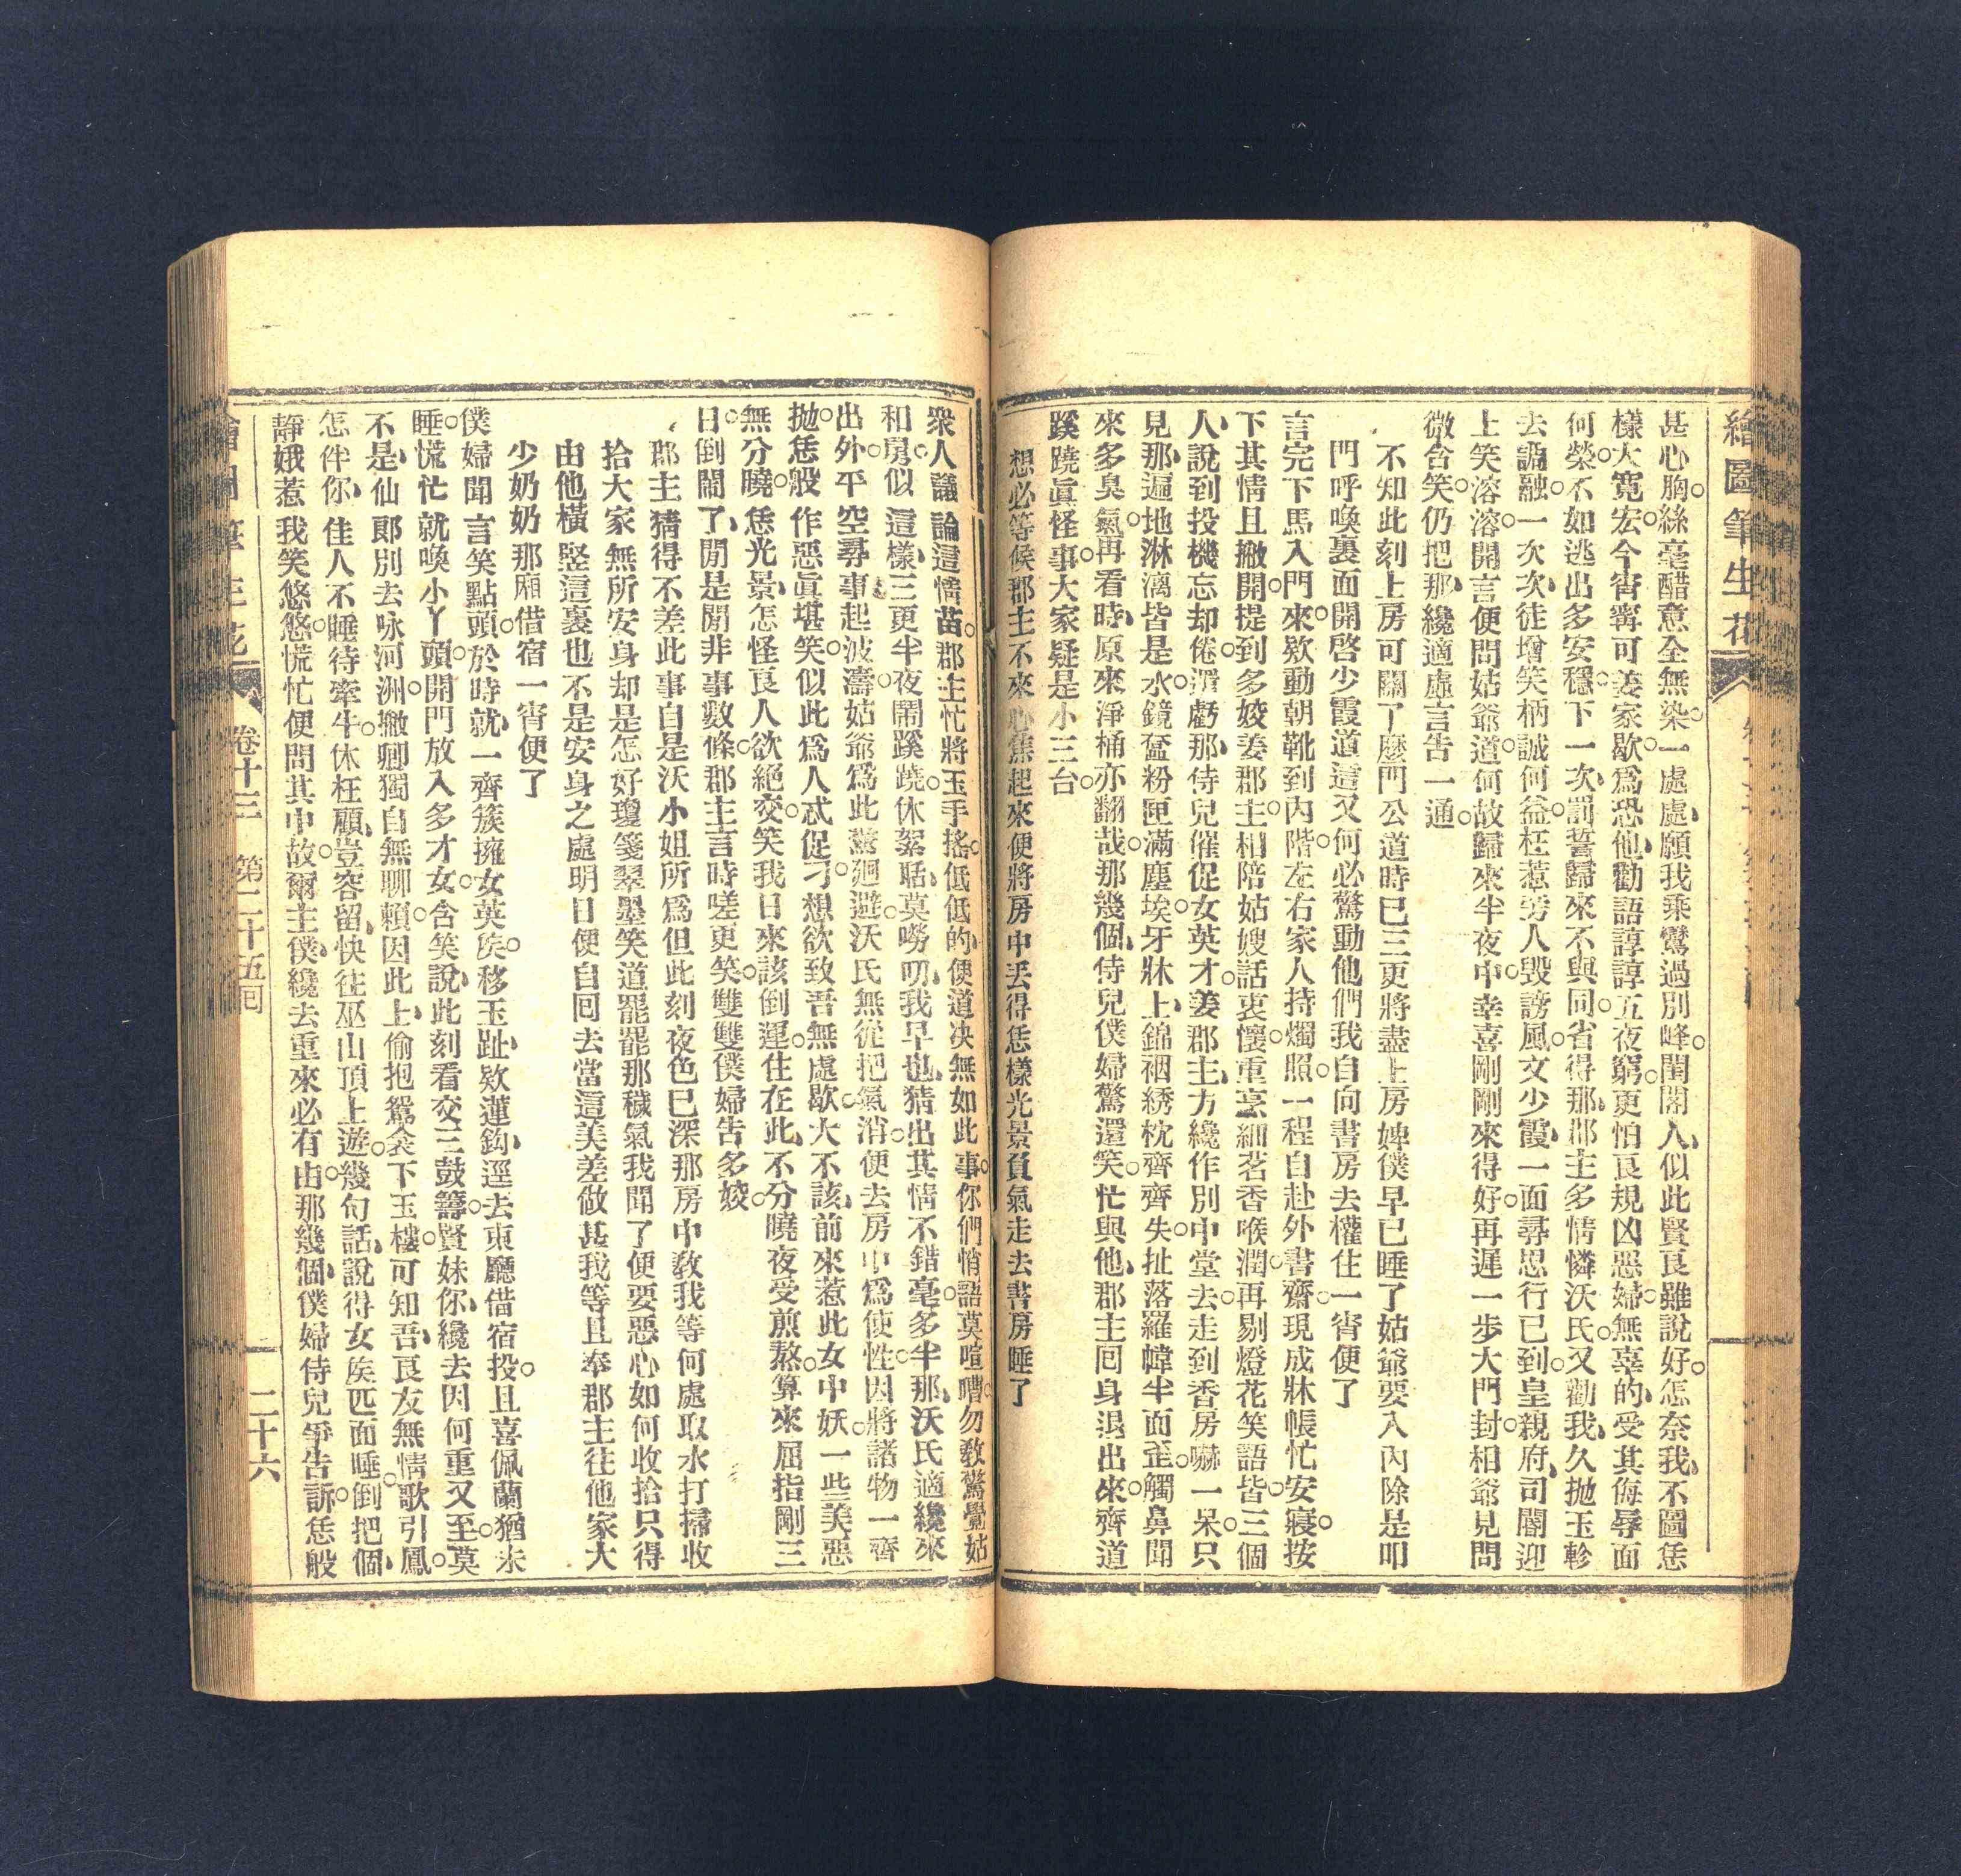 繪圖筆生花
甚心胸絲毫醋意全無染一處處願我乘鸞過別峰閨閣人似此賢良雖說好怎奈我不圖恁
樣大寬宏今宵寧可姜家歇爲恐他勸語諄諄五夜窮更怕良規凶惡婦無辜的受其侮辱面
何榮不如逃出多安穩下一次罰誓歸來不與同省得那郡主多情憐沃氏又勸我久拋玉軫
去調融一次次徒增笑柄誠何益枉惹旁人毀謗風文少霞一面尋思行已到皇親府司閽迎
上笑溶溶開言便問姑爺道何故歸來半夜中幸喜剛剛來得好再遲一步大門封相爺見問
微含笑仍把那纔適虛言告一通
不知此刻上房可關了麼門公道時已三更將盡上房婢僕早已睡了姑爺要入內除是叩
門呼喚裏面開啓少霞道這又何必驚動他們我自向書房去權住一宵便了
言完下馬入門來欵動朝靴到內階左右家人持燭照一程自赴外書齋現成牀帳忙安寢按
下其情且撇開提到多姣姜郡主相陪姑嫂話衷懷重烹細茗香喉潤再剔燈花笑語皆三個
人說到投機忘却倦渭虧那侍兒催促女英才姜郡主方纔作別中堂去走到香房嚇一呆只
見那遍地淋漓皆是水鏡奩粉匣滿塵埃牙牀上錦裀綉枕齊齊失扯落羅幃半面歪觸鼻聞
來多臭氣再看時原來淨桶亦翻哉那幾個侍兒僕婦驚還笑忙與他郡主回身退出來齊道
蹊蹺眞怪事大家疑是小三台
想必等候郡主不來心焦起來便將房中丟得恁樣光景負氣走去書房睡了
衆人議論這情苗郡主忙將玉手搖低低的便道决無如此事你們悄語莫喧嘈勿教驚覺姑
和舅似這樣三更半夜鬧蹊蹺休絮聒莫嘮叨我早也猜出其情不錯毫多半那沃氏適纔來
出外平空尋事起波濤姑爺爲此驚迴避沃氏無從把氣消便去房中爲使性因將諸物一齊
拋恁般作惡眞堪笑似此爲人忒促刁想欲致吾無處歇大不該前來惹此女中妖一些美惡
無分曉恁光景怎怪良人欲絕交笑我日來該倒運住在此不分曉夜受煎熬算來屈指剛三
日倒鬧了閒是閒非事數條郡主言時嗟更笑雙雙僕婦告多姣
郡主猜得不差此事自是沃小姐所爲但此刻夜色已深那房中教我等何處取水打掃收
拾大家無所安身却是怎好瓊箋翠墨笑道罷罷那穢氣我聞了便要惡心如何收拾只得
由他橫竪這裏也不是安身之處明日便自回去當這美差做甚我等且奉郡主往他家大
少奶奶那廂借宿一宵便了
僕婦聞言笑點頭於時就一齊簇擁女英侯移玉趾欵蓮鈎逕去東廳借宿投且喜佩蘭猶未
睡慌忙就喚小丫頭開門放入多才女含笑說此刻看交三鼓籌賢妹你纔去因何重又至莫
不是仙郎別去咏河洲撇卿獨自無聊賴因此上偷抱鴛衾下玉樓可知吾良友無情歌引鳳
怎伴你佳人不睡待牽牛休枉顧豈容留快往巫山頂上遊幾句話說得女侯匹面唾倒把個
靜娥惹我笑悠悠慌忙便問其中故爾主僕纔去重來必有由那幾個僕婦侍兒爭告訴恁般
繪圖筆生花 卷十三 第二十五回 二十六